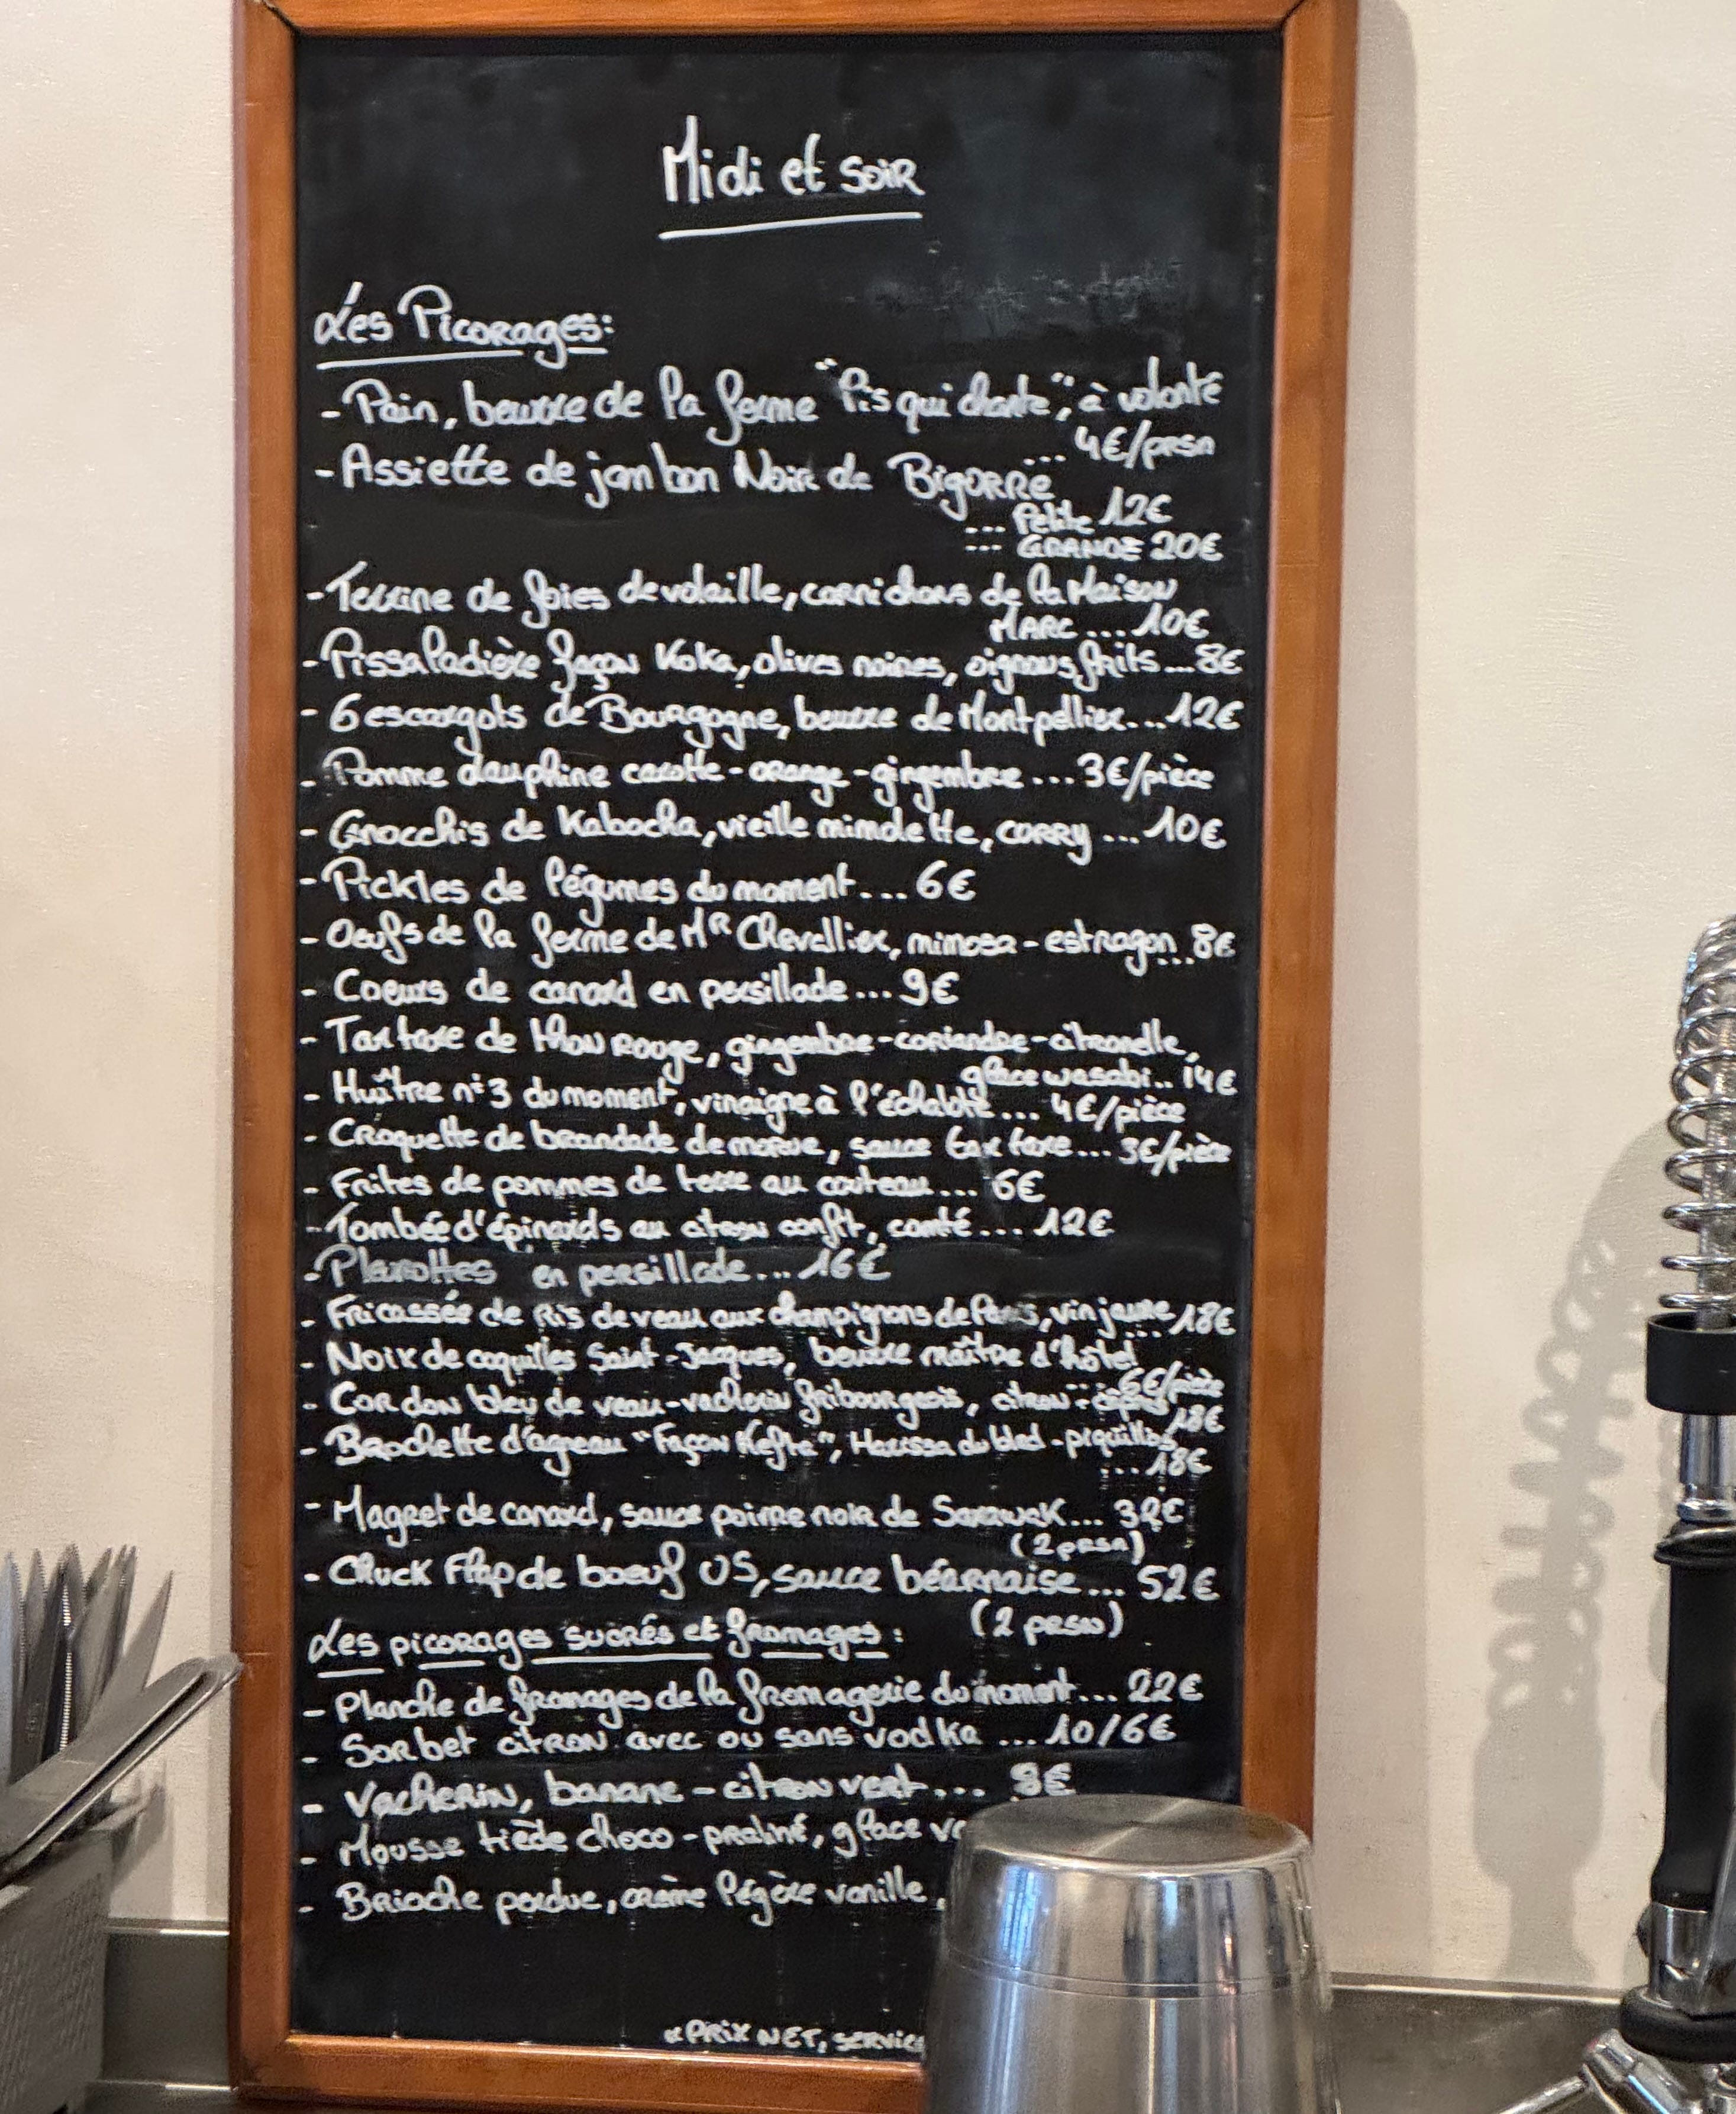 Midi et soir
Les Picorages:
- Pain, beurre de la ferme "Pis qui chante", à volonté
... 4€/prsn
- Assiette de jambon Noir de Bigorre
... Petite 12€
... GRANDE 20€
- Terrine de foies de volaille, cornichons de la Maison
MARC ... 10€
- Pissaladière façon Koka, olives noires, oignons frits ... 8€
- 6 escargots de Bourgogne, beurre de Montpellier ... 12€
- Pomme dauphine carotte - orange - gingembre ... 3€/pièce
- Gnocchis de Kabocha, vieille mimolette, curry ... 10€
- Pickles de légumes du moment .... 6€
- Oeufs de la ferme de Mr Chevallier, mimosa - estragon ... 8€
- Coeurs de canard en persillade ... 9€
- Tartare de thon rouge, gingembre - coriandre - citronelle,
glace wasabi .. 14€
- Huître n°3 du moment, vinaigre à l'échalote ... 4€/pièce
- Croquette de brandade de morue, sauce tartare ... 3€/pièce
- Frites de pommes de terre au couteau ... 6€
- Tombée d'épinards au citron confit, comté .... 12€
- Pleurottes en persillade ... 16€
- Fricassée de Ris de veau aux champignons de Paris, vin jaune ... 18€
- Noix de coquilles Saint-Jacques, beurre maître d'hôtel
... 6€/pièce
- Cordon bleu de veau - vacherin fribourgeois, citron - câpres
18€
- Brochette d'agneau "Façon Kefta", Harissa du bled - piquillos
... 18€
- Magret de canard, sauce poivre noir de Sarawak ...
(2 prsn)
- Chuck Flap de boeuf US, sauce béarnaise ... 52€
(2 prsn)
Les picorages sucrés et fromages :
- Planche de fromages de la fromagerie du moment ... 22€
- Sorbet citron avec ou sans vodka ... 10/6€
- Vacherin, banane - citron vert ....
- Mousse tiède choco - praliné, glace
- Brioche perdue, crème légère vanille,
"PRIX NET, SERVICE